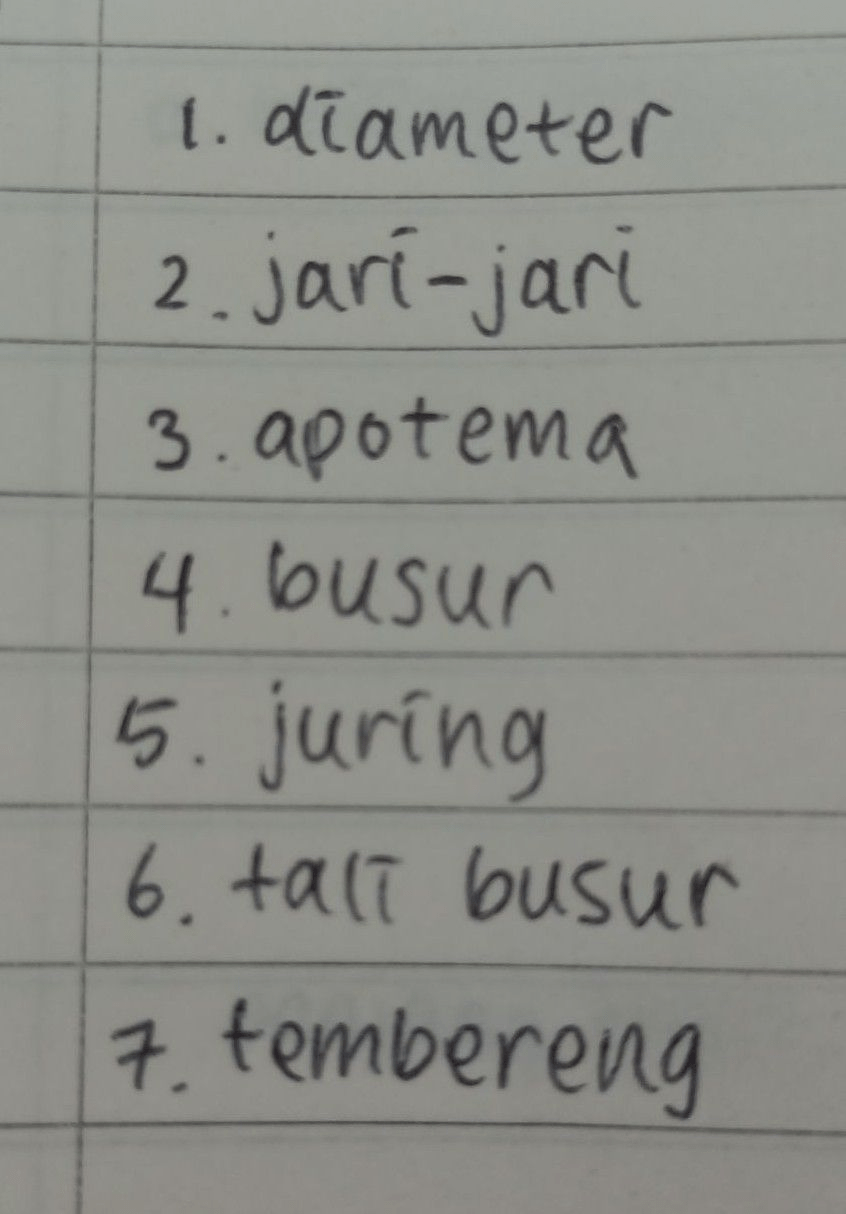 1. diameter
2. jari-jari
3. apotema
4. busur
5. juring
6. tali busur
7. tembereng